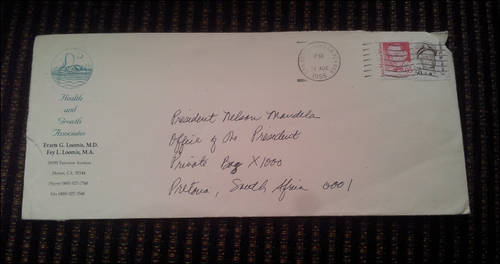 Health
and
Growth
Associates
Evarts G. Loomis, M.D.
Fay L. Loomis, M.A.
Hemet, CA. 92544
PM
1996
President Nelson Mandela
Office of the President
Private Bag X1000
Pretoria, South Africa 0001